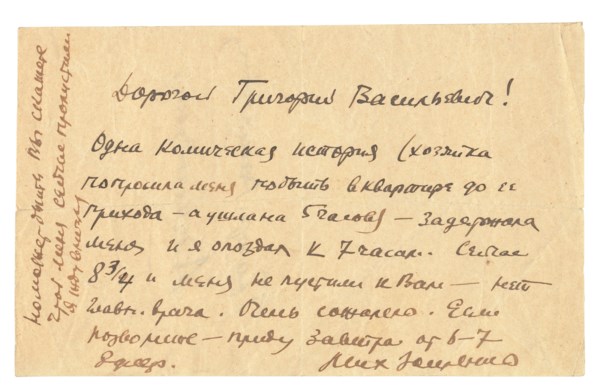 Дорогой Григорий Васильевич!
Одна комическая история (хозяйка
попросила меня побыть в квартире до ее
прихода — а ушла на 5 часов) — задержала
меня и я опоздал к 7 часам. Сейчас
8 3/4 и меня не пустили к Вам — нет
главн. врача. Очень сожалею. Если
позволите — приду завтра от 6–7
Мих Зощенко
может быть Вы скажете
чтоб меня сейчас пропустили